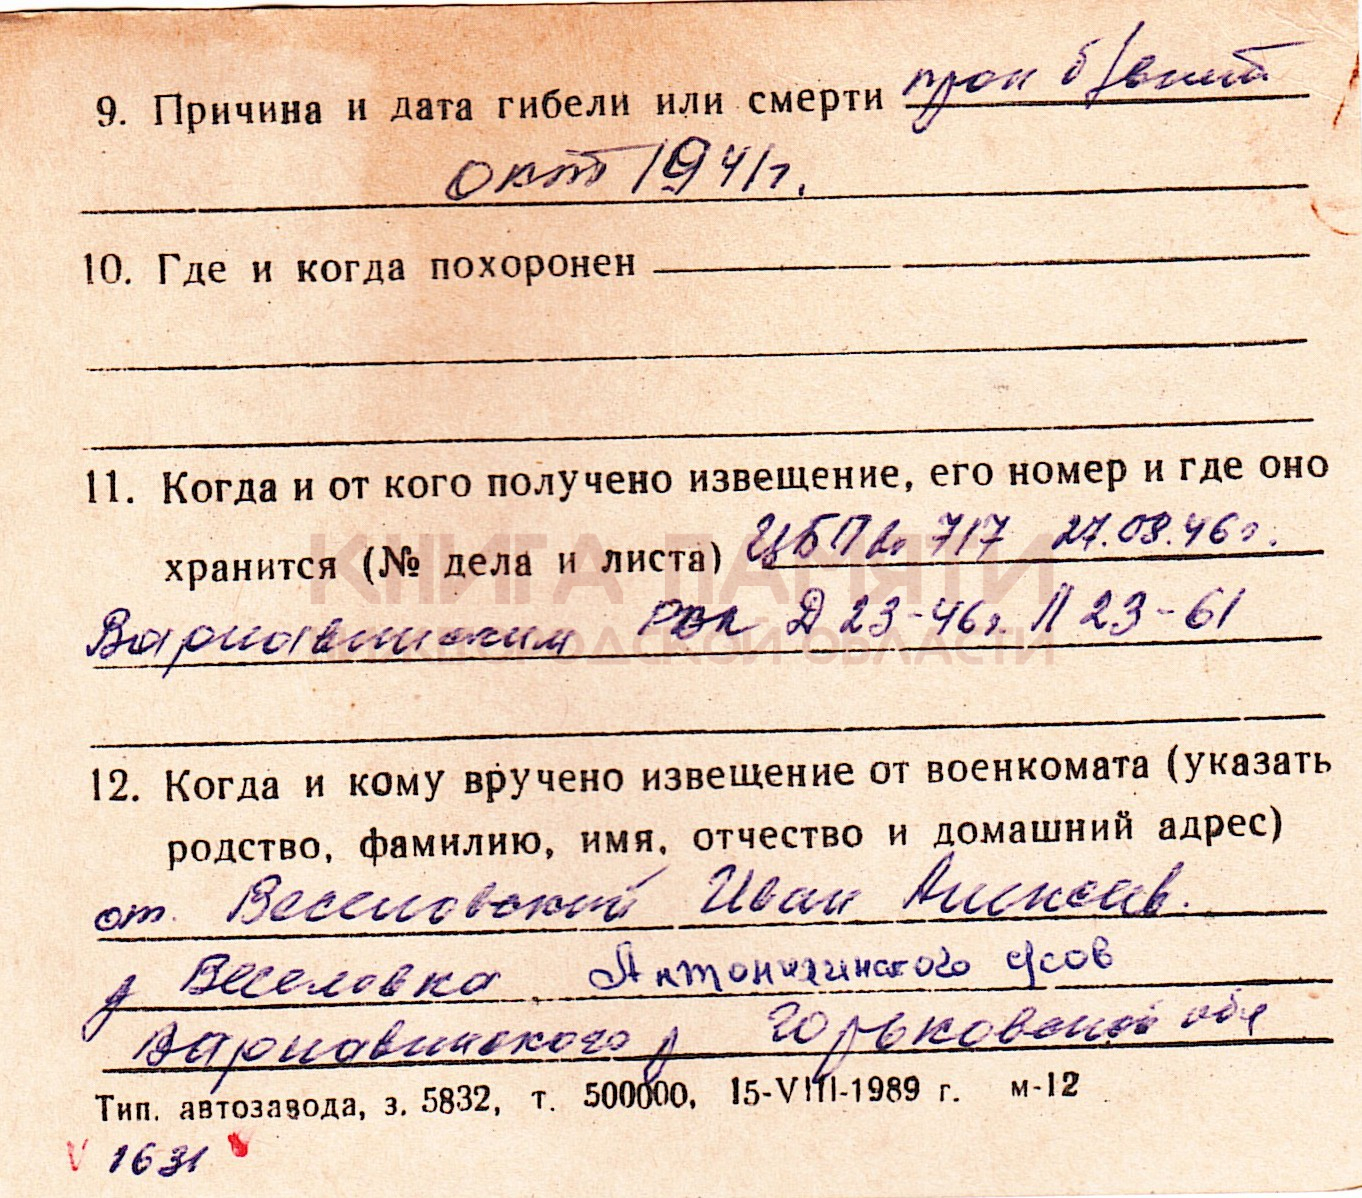 9. Причина и дата гибели или смерти проп б/вести
окт 1941г.
10. Где и когда похоронен
11. Когда и от кого получено извещение, его номер и где оно
хранится (№ дела и листа) 717 27.08.46г.
КНИГА ПАМЯТИ
Варнавинским РВК Д 23-46г Л 23-61
НИЖЕГОРОДСКОЙ ОБЛАСТИ
12. Когда и кому вручено извещение от военкомата (указать
родство, фамилию, имя, отчество и домашний адрес)
от. Веселовский Иван Алексеев.
д Веселовка с/сов
Варнавинского р Горьковской обл
Тип. автозавода, з. 5832, т. 500000, 15-VIII-1989 г. м-12
V 1631